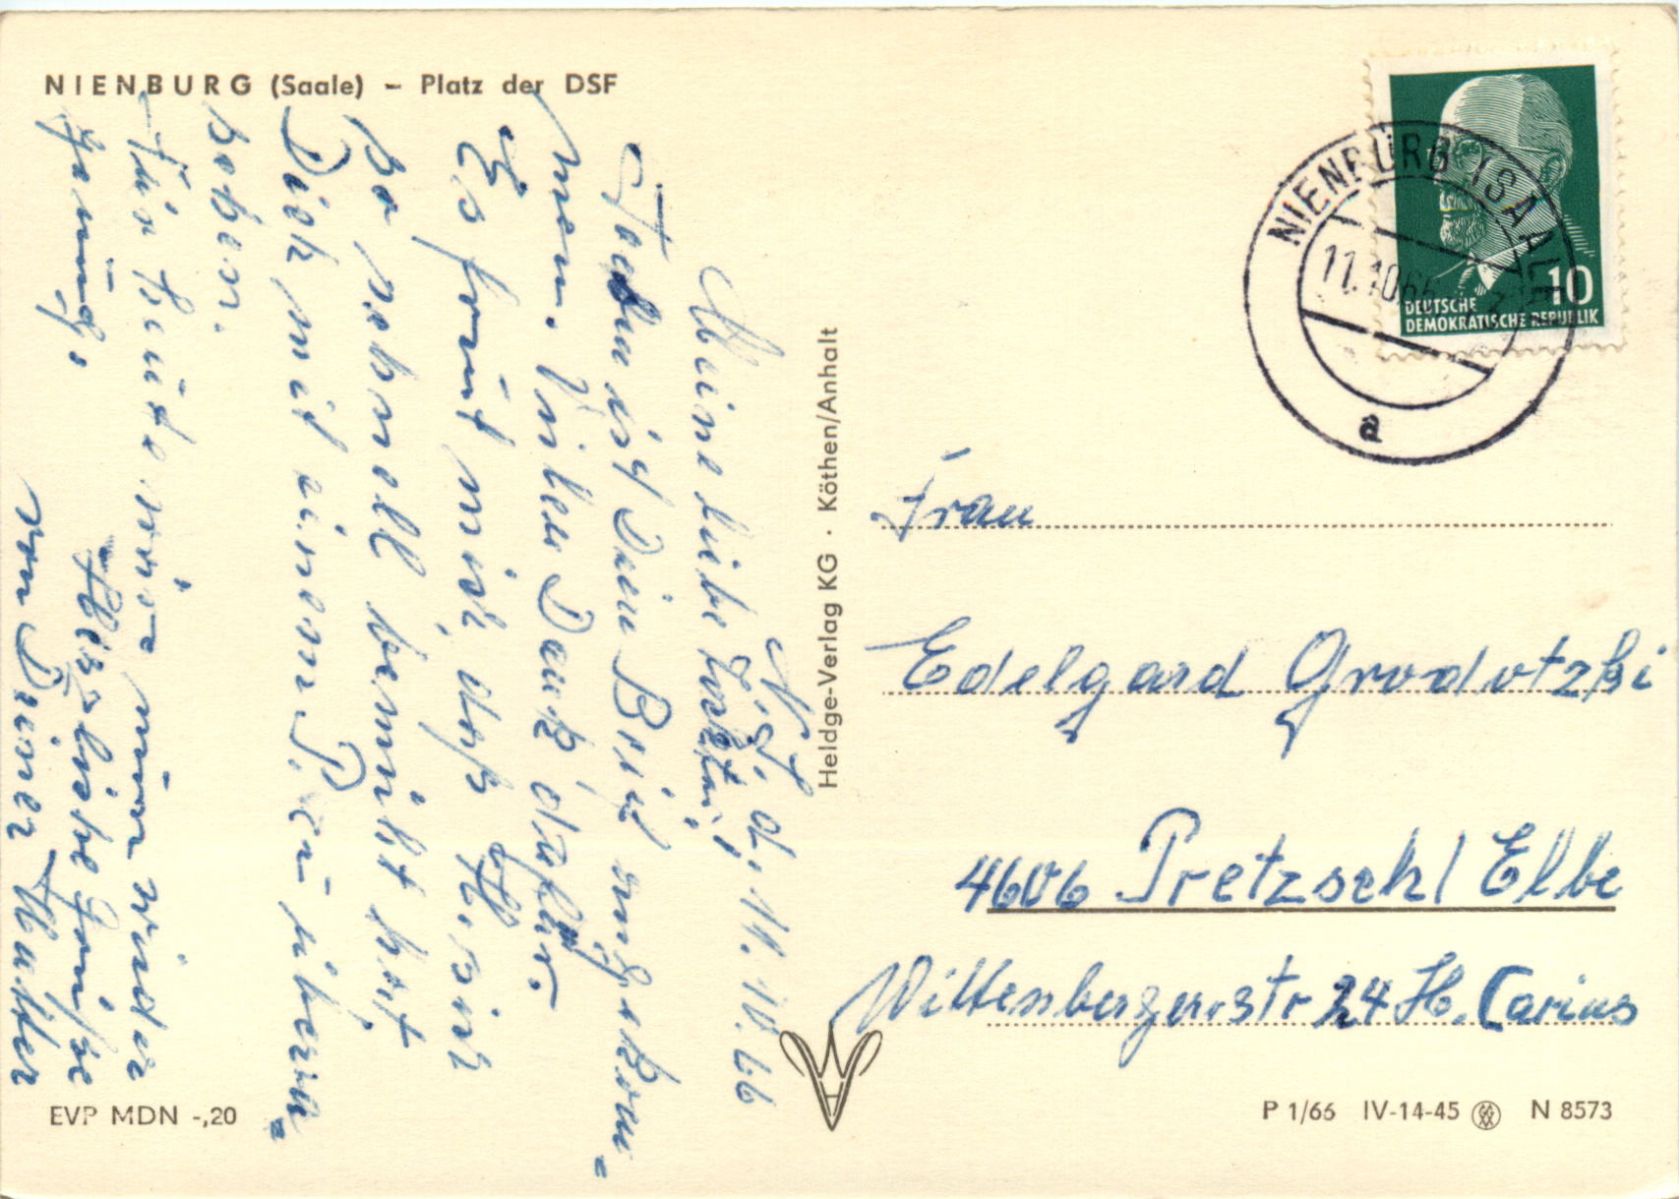 NIENBURG (Saale) – Platz der DSF
Nbg, d. 11.10.66
Meine liebe Tochter!
Soeben ist Dein Brief angekom-
men. Vielen Dank dafür.
Es freut mich, daß H. sich
so schnell bemüht hat
Dich mit einem P. zu überra-
schen.
Für heute nun wieder
genug.
Herzliche Grüße
von Deiner Mutter
EVP MDN -,20
Heldge-Verlag KG · Köthen/Anhalt
NIENBURG (SAALE)
11.10.66
a
10
DEUTSCHE
DEMOKRATISCHE REPUBLIK
Frau
Edelgard Grodotzki
4606 Pretzsch/Elbe
Wittenbergerstr 24 H. Carius
P 1/66 IV-14-45 N 8573